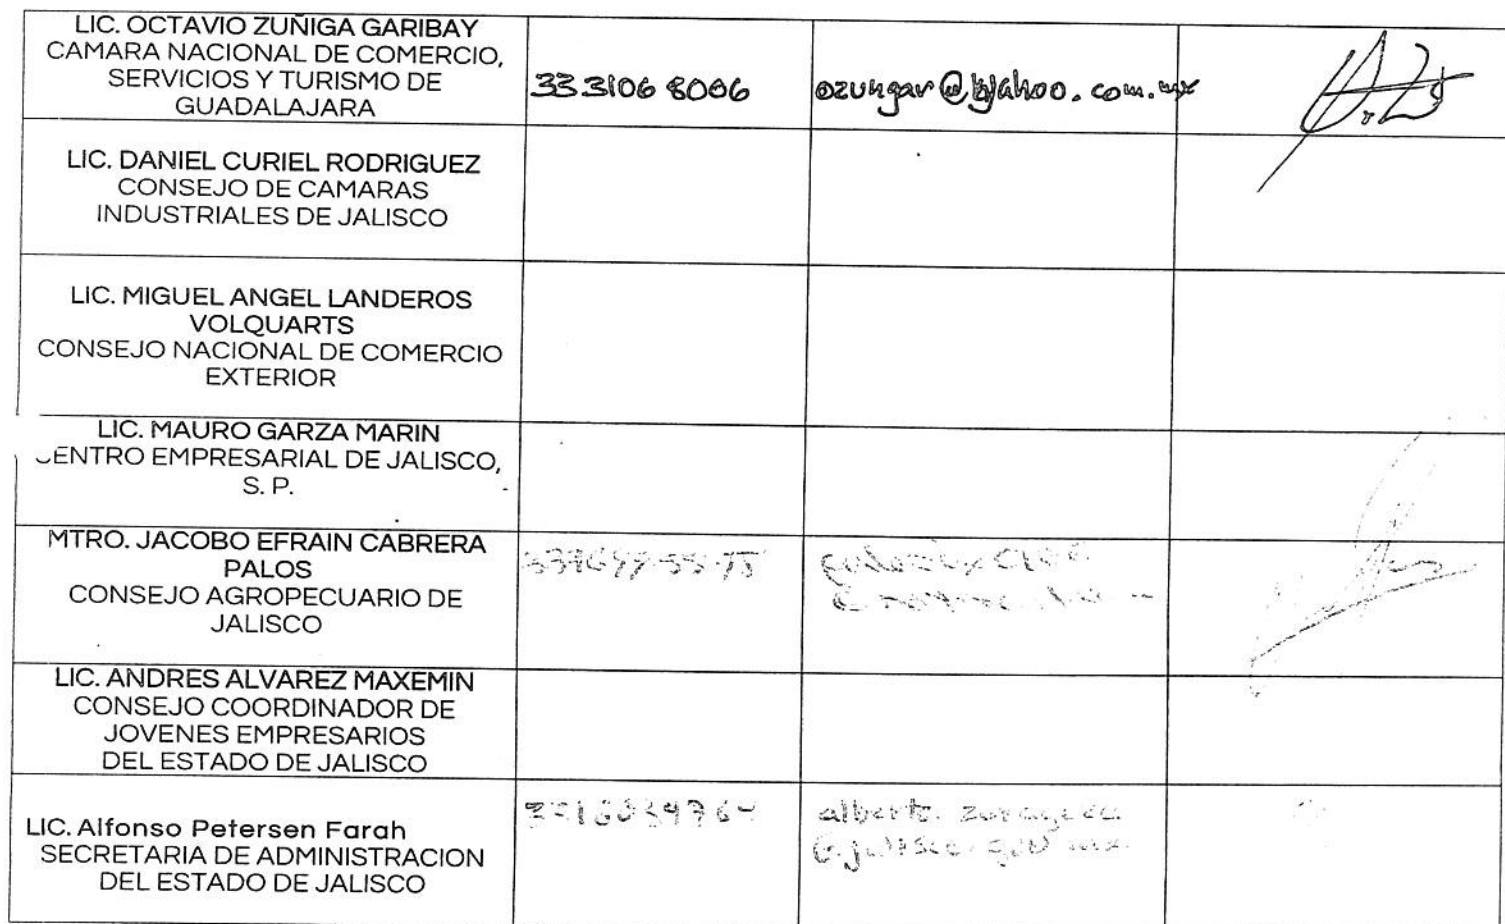 LIC. OCTAVIO ZUÑIGA GARIBAY
CAMARA NACIONAL DE COMERCIO,
SERVICIOS Y TURISMO DE
GUADALAJARA
33 3106 8006
ozungar@yahoo.com.mx
LIC. DANIEL CURIEL RODRIGUEZ
CONSEJO DE CAMARAS
INDUSTRIALES DE JALISCO
LIC. MIGUEL ANGEL LANDEROS
VOLQUARTS
CONSEJO NACIONAL DE COMERCIO
EXTERIOR
LIC. MAURO GARZA MARIN
CENTRO EMPRESARIAL DE JALISCO,
S. P.
MTRO. JACOBO EFRAIN CABRERA
PALOS
CONSEJO AGROPECUARIO DE
JALISCO
LIC. ANDRES ALVAREZ MAXEMIN
CONSEJO COORDINADOR DE
JOVENES EMPRESARIOS
DEL ESTADO DE JALISCO
LIC. Alfonso Petersen Farah
SECRETARIA DE ADMINISTRACION
DEL ESTADO DE JALISCO
alberto.
@jalisco.gob.mx.